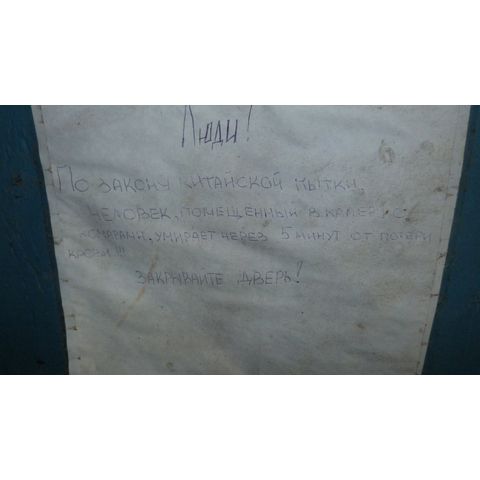 Люди!
По закону китайской пытки,
человек, помещенный в камеру с
комарами, умирает через 5 минут от потери
крови!!!
Закрывайте дверь!